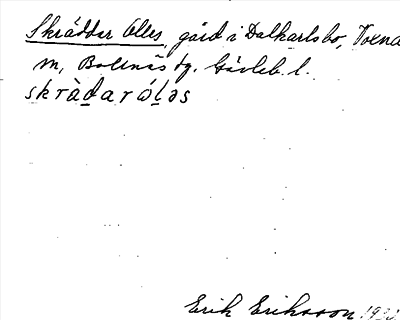 Skräddar Olles, gård i Dalkarlsbo, Voxna
m, Bollnäs tg. Gävleb. l.
skràdaról̯əs
Erik Eriksson